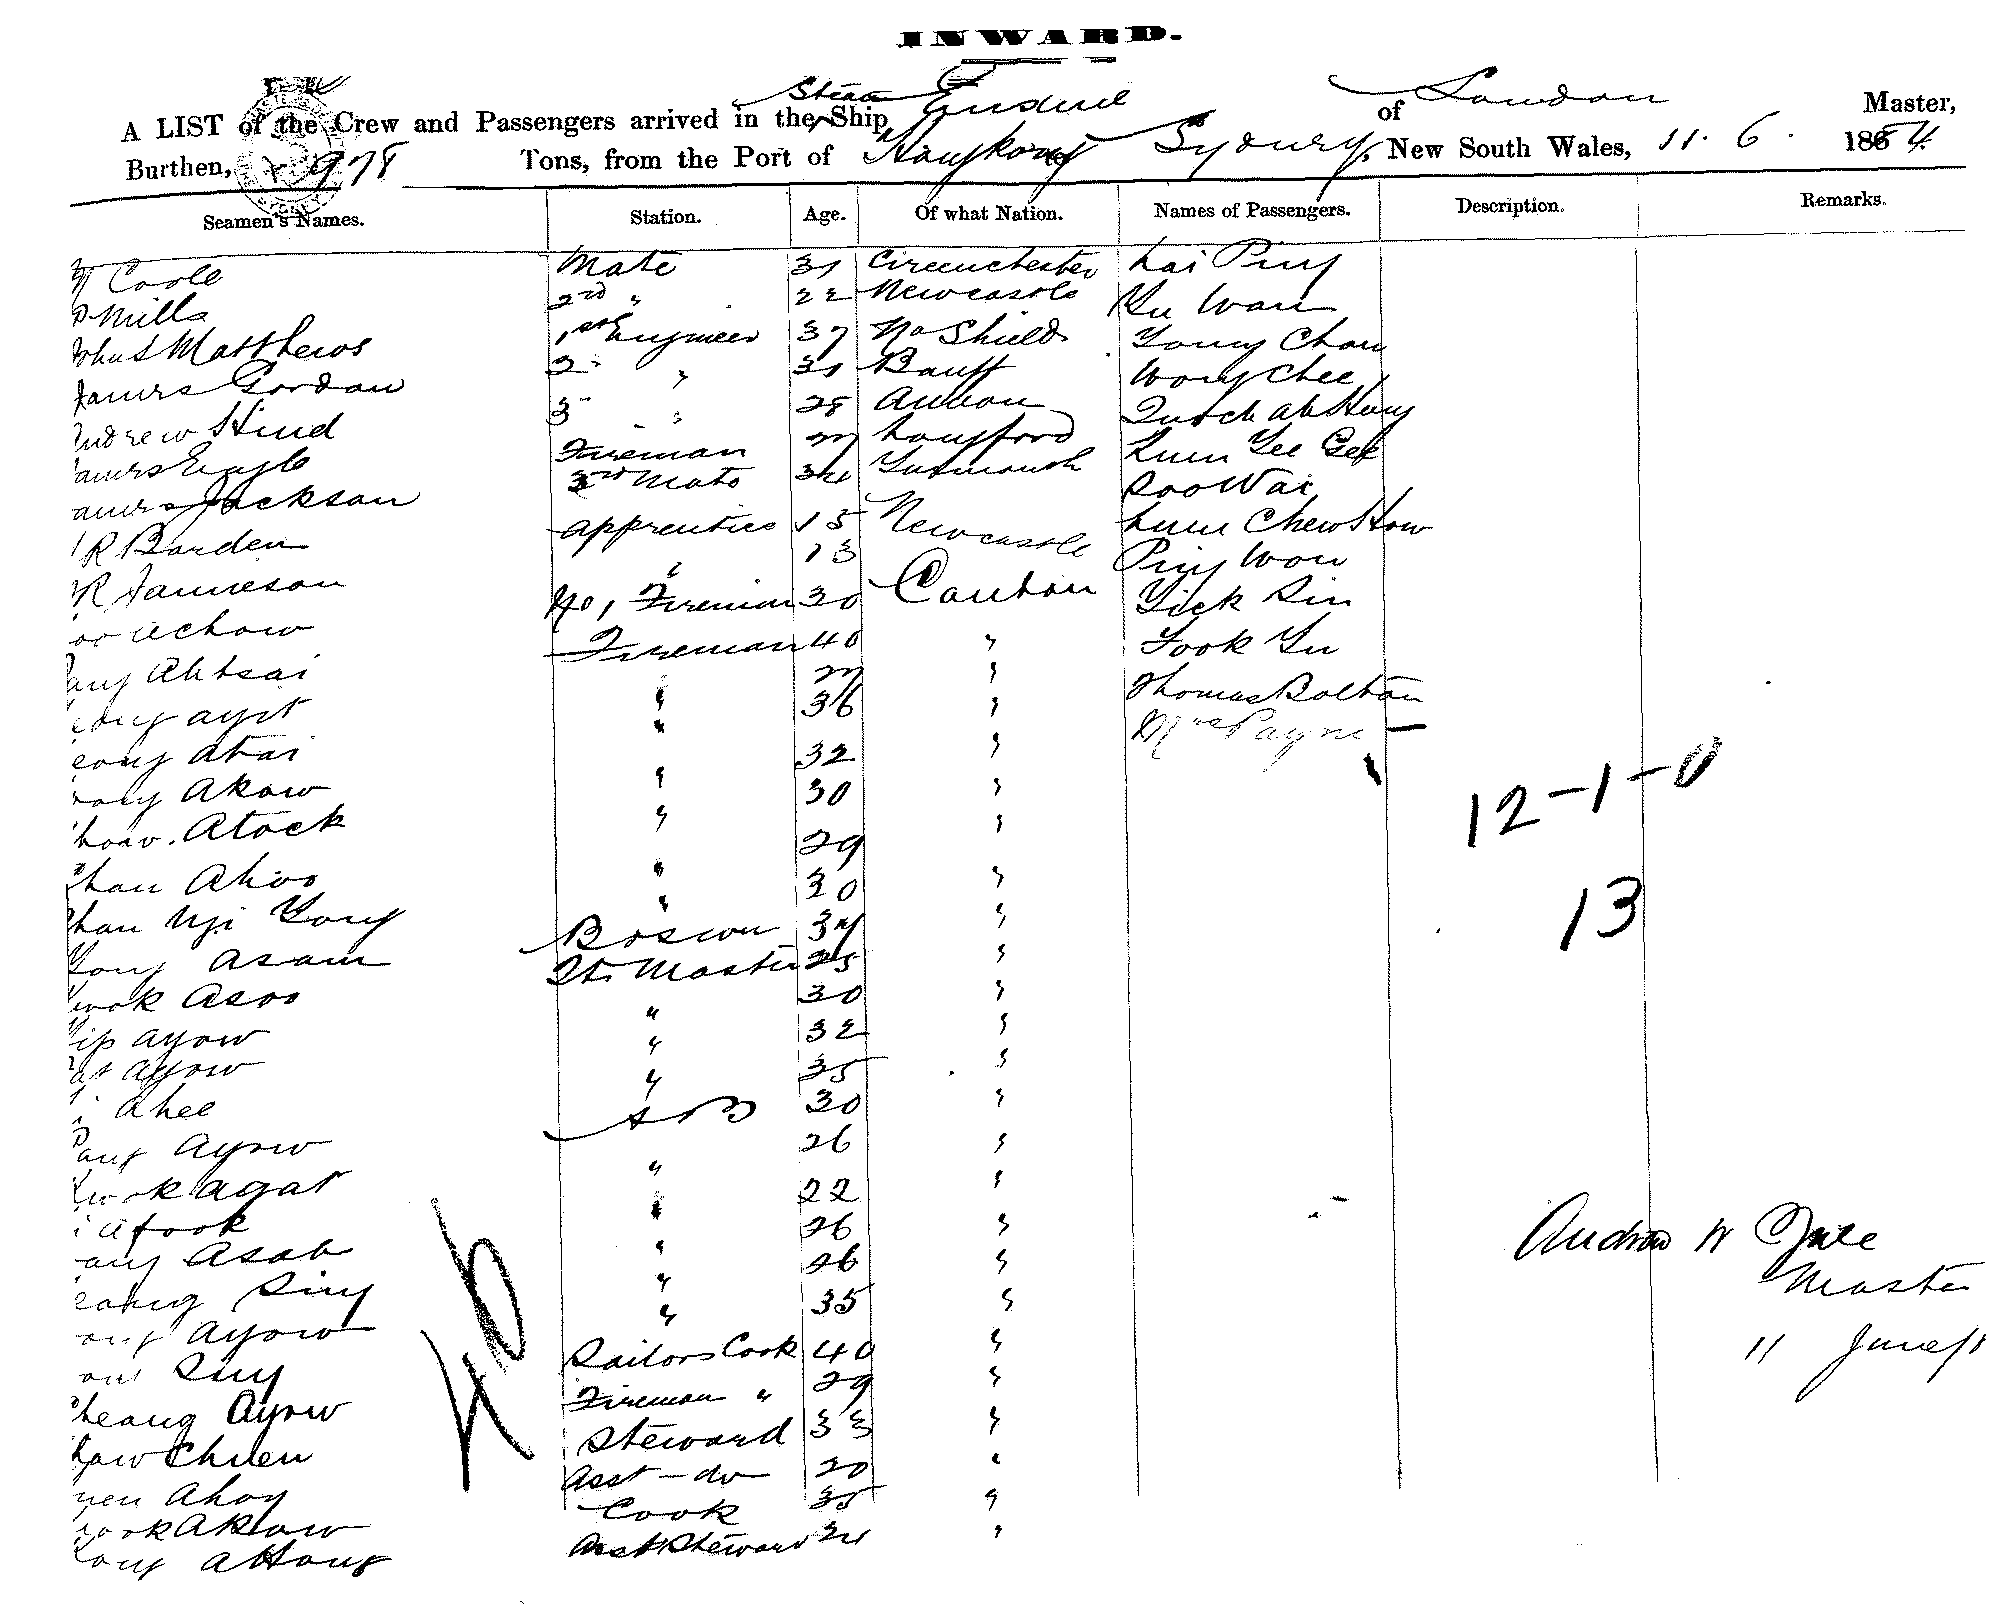 INWARD.
A LIST of the Crew and Passengers arrived in the Steam Ship of London Master,
Burthen, 978 Tons, from the Port of Hongkong to Sydney, New South Wales, 11. 6. 1884
Seamen's Names. Station. Age. Of what Nation. Names of Passengers. Description. Remarks.
Coole Mate 31 Cirenchester Lai Ping
Mills 2nd " 22 Newcastle Yu Wan
Matthews 1st Engineer 37 No Shields Young Chow
James Gordon 2 " 31 Banff Wong Chee
Andrew Hind 3 " 28 Ah Hung
James Engle Fireman 27 Longford Lum Yee Gek
James Jackson 3rd Mate 34 Yarmouth Soo Wai
R Barden apprentice 15 Newcastle Lum Chew How
R Jamieson " 13 Ping Won
Achow No 1 Fireman 30 Canton Yick Sin
Ahtsai Fireman 40 " Fook Yu
ayit " 27 " Thomas Bolton
Atai " 36 " Mrs Payne
Akow " 32 "
Atock " 30 "
Chan Ahoo " 29 "
Chan Ngi Yong " 30 "
Yong Asam Boswn 37 "
Asoo Qtr Master 25 "
Yip Ayow " 30 "
Ayow " 32 "
Ahee " 35 "
Ayow A B 30 "
Kwok Agat " 26 "
Afook " 22 "
Asab " 26 "
Sing " 26 "
Ayow " 35 "
Sing Sailors Cook 40 "
Cheang Ayow Fireman " 29 "
Chuen Steward 33 "
Ahoy Asst - do 20 "
Akow Cook 35 "
Ahong Asst Steward 24 "
12-1-0
13
Andrew W
Master
11 June
40